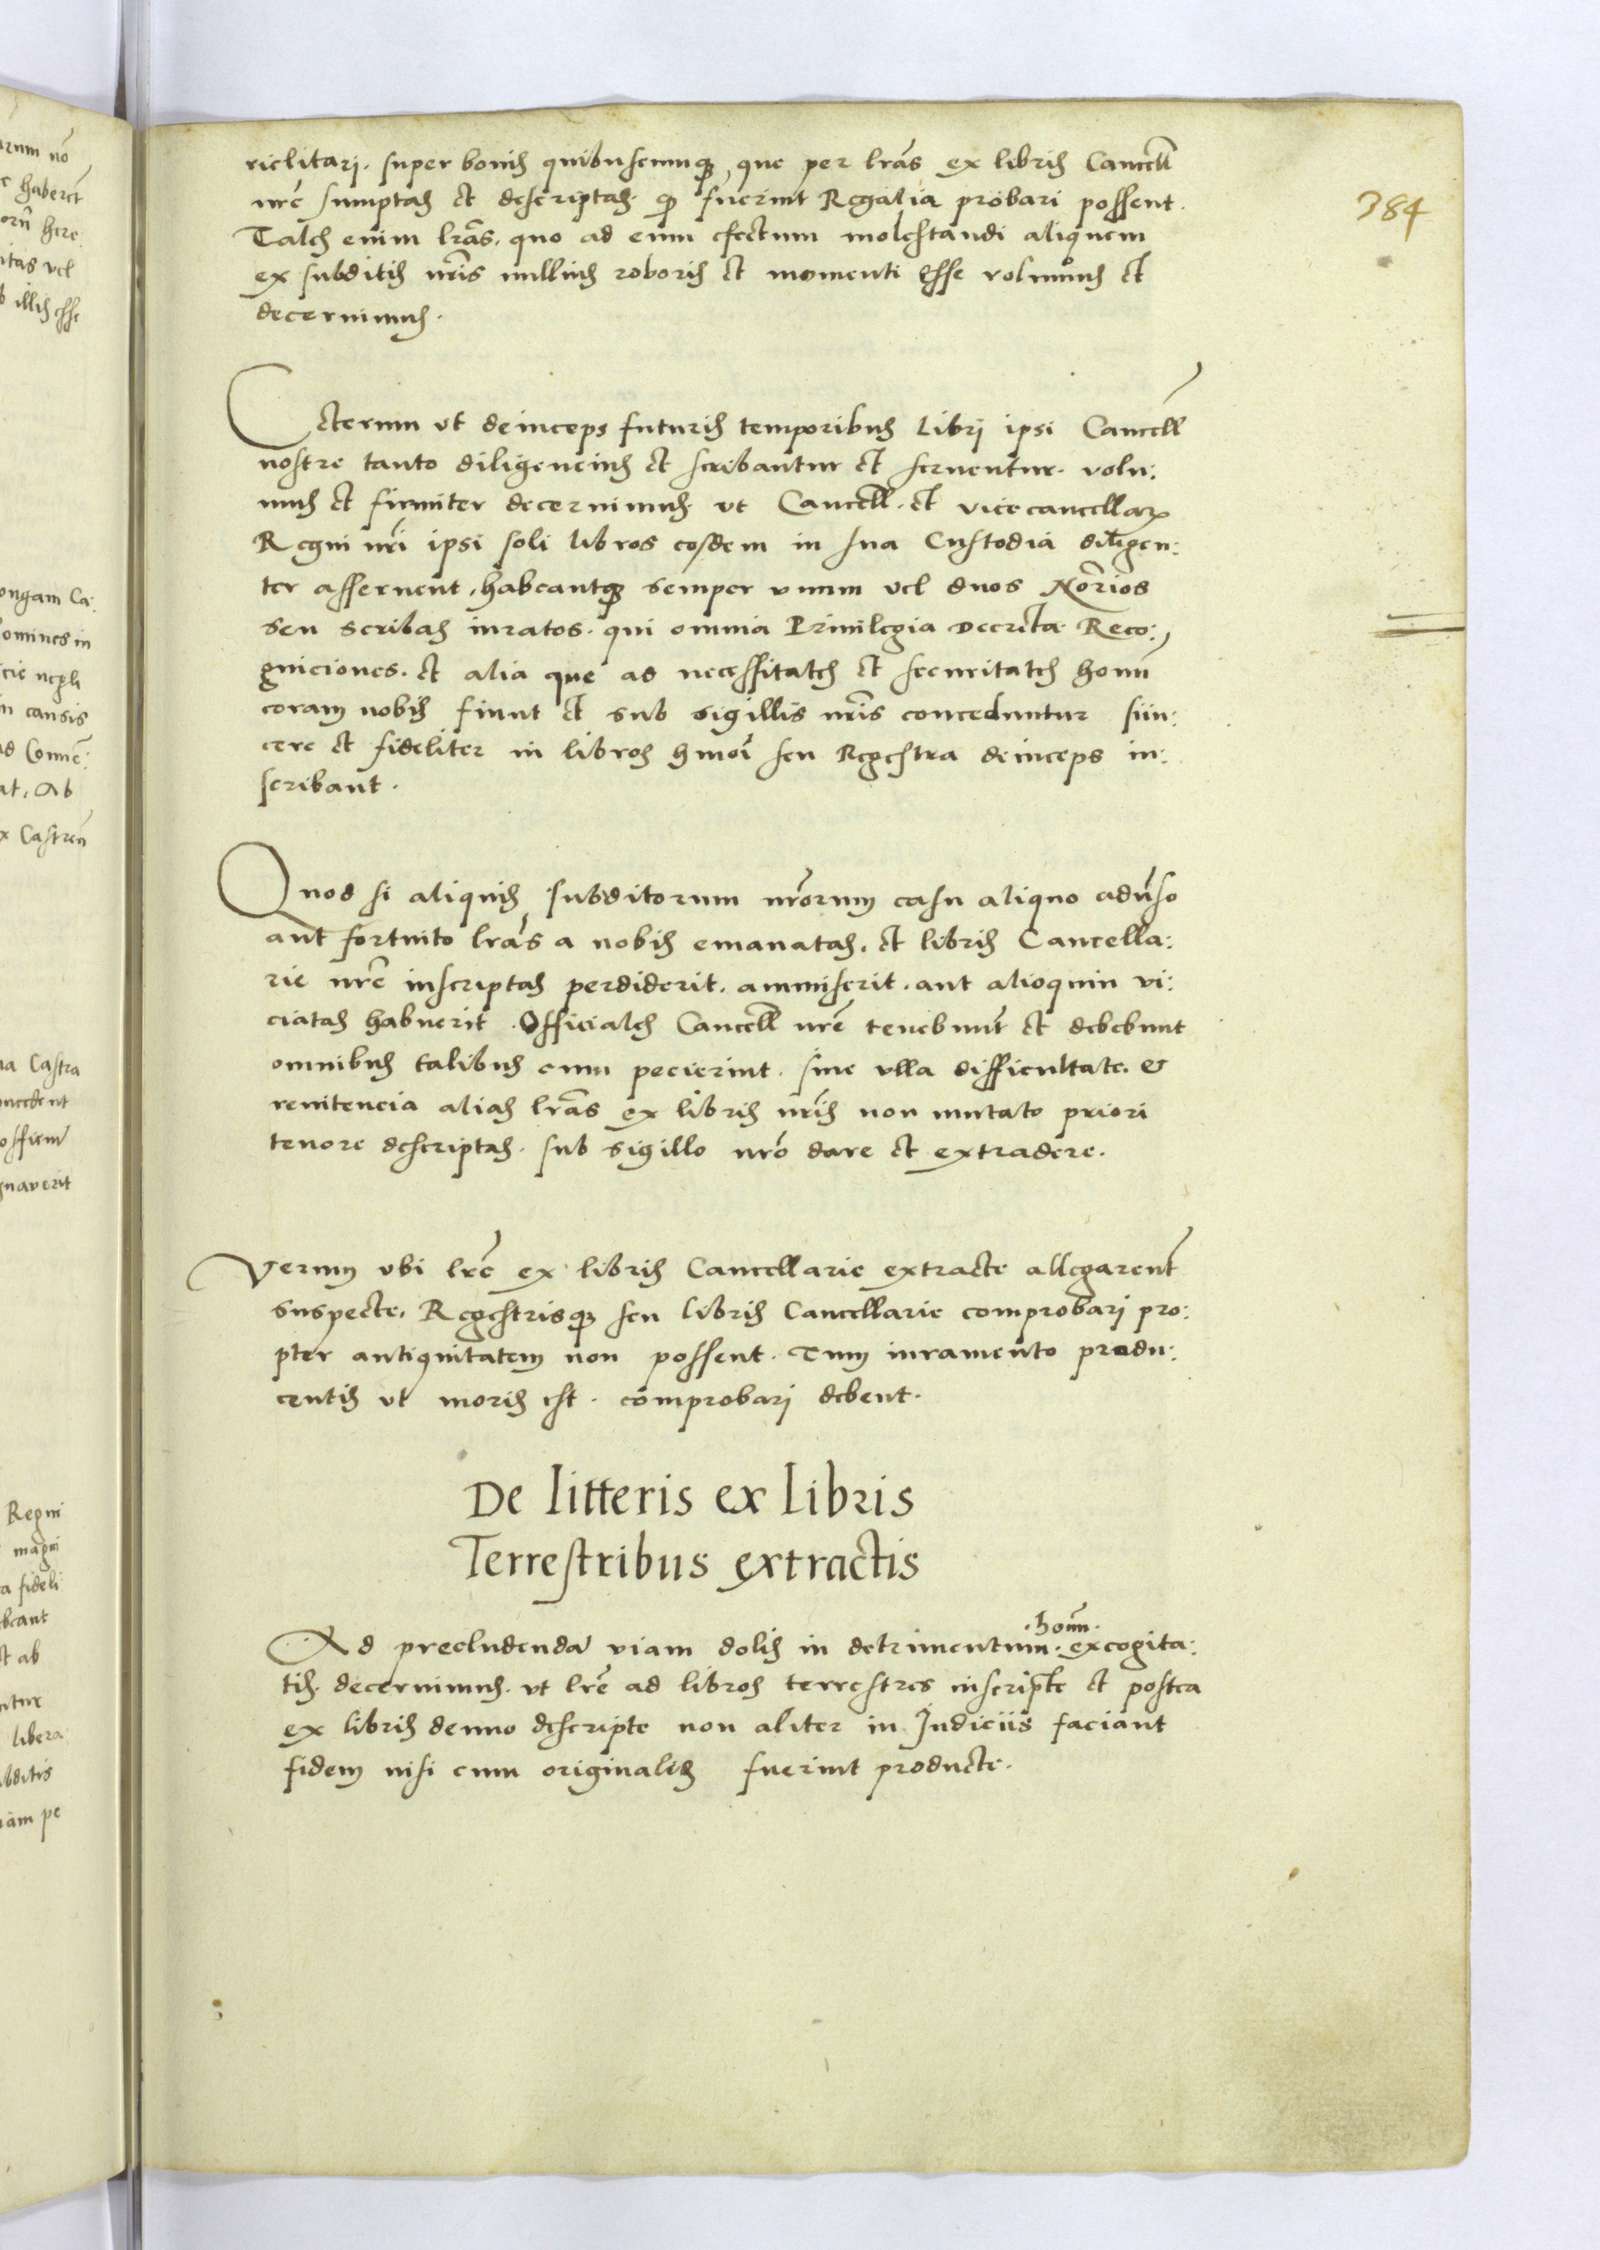 384
riclitari. super bonis quibuscumq3, que per lras ex libris Cancell
nre sumptas et descriptas. q fuerint Regalia probari possent.
Tales enim lras. quo ad eum efectum molestandi aliquem
ex subditis nris nullius roboris et momenti esse volumus et
decernimus.
Ceterum ut deinceps futuris temporibus Libri ipsi Cancell
nostre tanto diligencius et scribantur et seruentur. volu:
mus et firmiter decernimus. ut Cancell. et vicecancellarij
Regni nri ipsi soli libros eosdem in sua Custodia diligen:
ter asseruent, habeantq3 semper vnum vel duos Norios
seu scribas iuratos. qui omnia Priuilegia Decreta Reco:
gniciones. et alia que ad necessitates et securitates homi
coram nobis fiunt et sub sigillis nris conceduntur siin:
cere et fideliter in libros hmoi seu Regestra deinceps in:
scribant.
Quod si aliquis subditorum nrorum casu aliquo aduso
aut fortuito lras a nobis emanatas. et libris Cancella:
rie nre inscriptas perdiderit. ammiserit. aut alioquin vi:
ciatas habuerit. Officiales Cancell nre tenebunt et debebunt
omnibus talibus cum pecierint. sine vlla difficultate. &
renitencia alias lras ex libris nris non mutato priori
tenore descriptas. sub sigillo nro dare et extradere.
Verum vbi lre ex libris Cancellarie extracte allegarent
suspecte, Regestrisq3 seu libris Cancellarie comprobari pro:
pter antiquitatem non possent. Tum iuramento produ:
centis ut moris est. comprobari debent.
De litteris ex libris
Terrestribus extractis
Ad precludenda viam dolis in detrimentum .hom. excogita:
tis. decernimus. ut lre ad libros terrestres inscripte et postea
ex libris denuo descripte non aliter in Judiciis faciant
fidem nisi cum originalis fuerint producte.